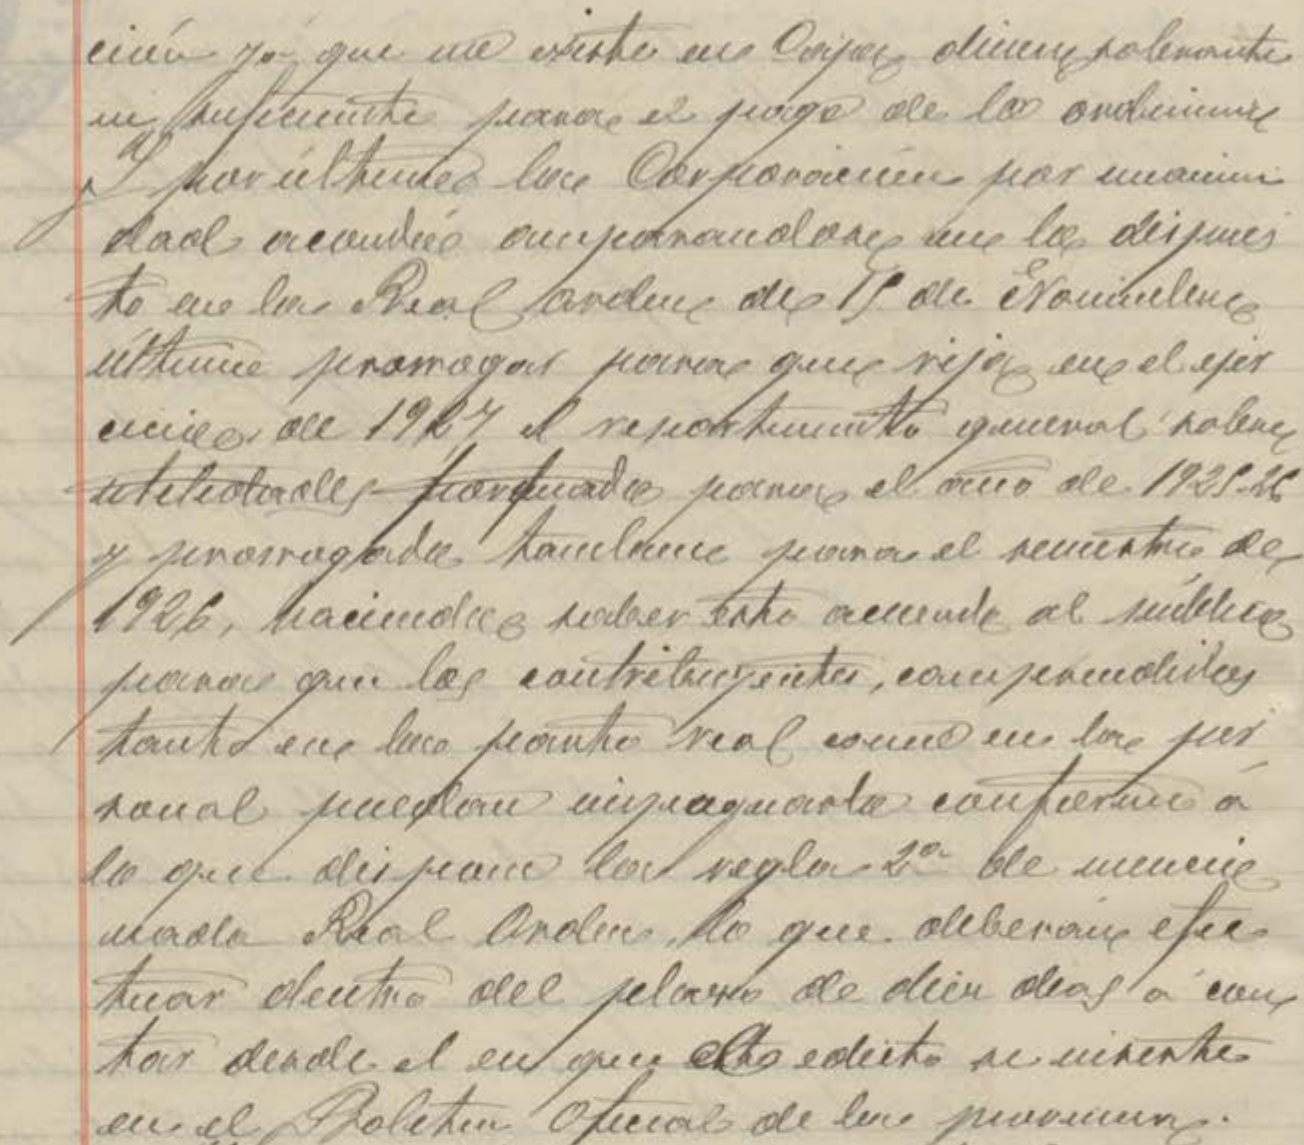 ción ya que no existe en Caja dinero sobrante
ni suficiente para el pago de lo ordinario
Y por último la Corporación por unanimi
dad acordó amparandose en lo dispues
to en la Real orden de 15 de Noviembre
último prorrogar para que rija en el ejer
cicio de 1927 el repartimiento general sobre
utilidades formado para el año de 1925-26
y prorrogado tambien para el semestre de
1926, haciendo saber este acuerdo al público
para que los contribuyentes, comprendidos
tanto en la parte real como en la per
sonal puedan impugnarlo conforme á
lo que dispone la regla 2ª de mencio
nada Real Orden, lo que deberán efec
tuar dentro del plazo de diez dias á con
tar desde el en que este edicto se inserte
en el Boletin Oficial de la provincia.